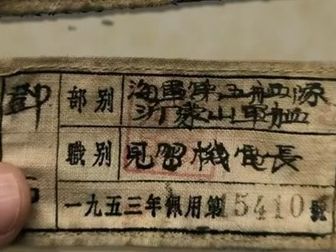 鄧
部别 海軍第五艦隊
沂蒙山軍艦
職别 見習機電長
一九五三年佩用第15410號